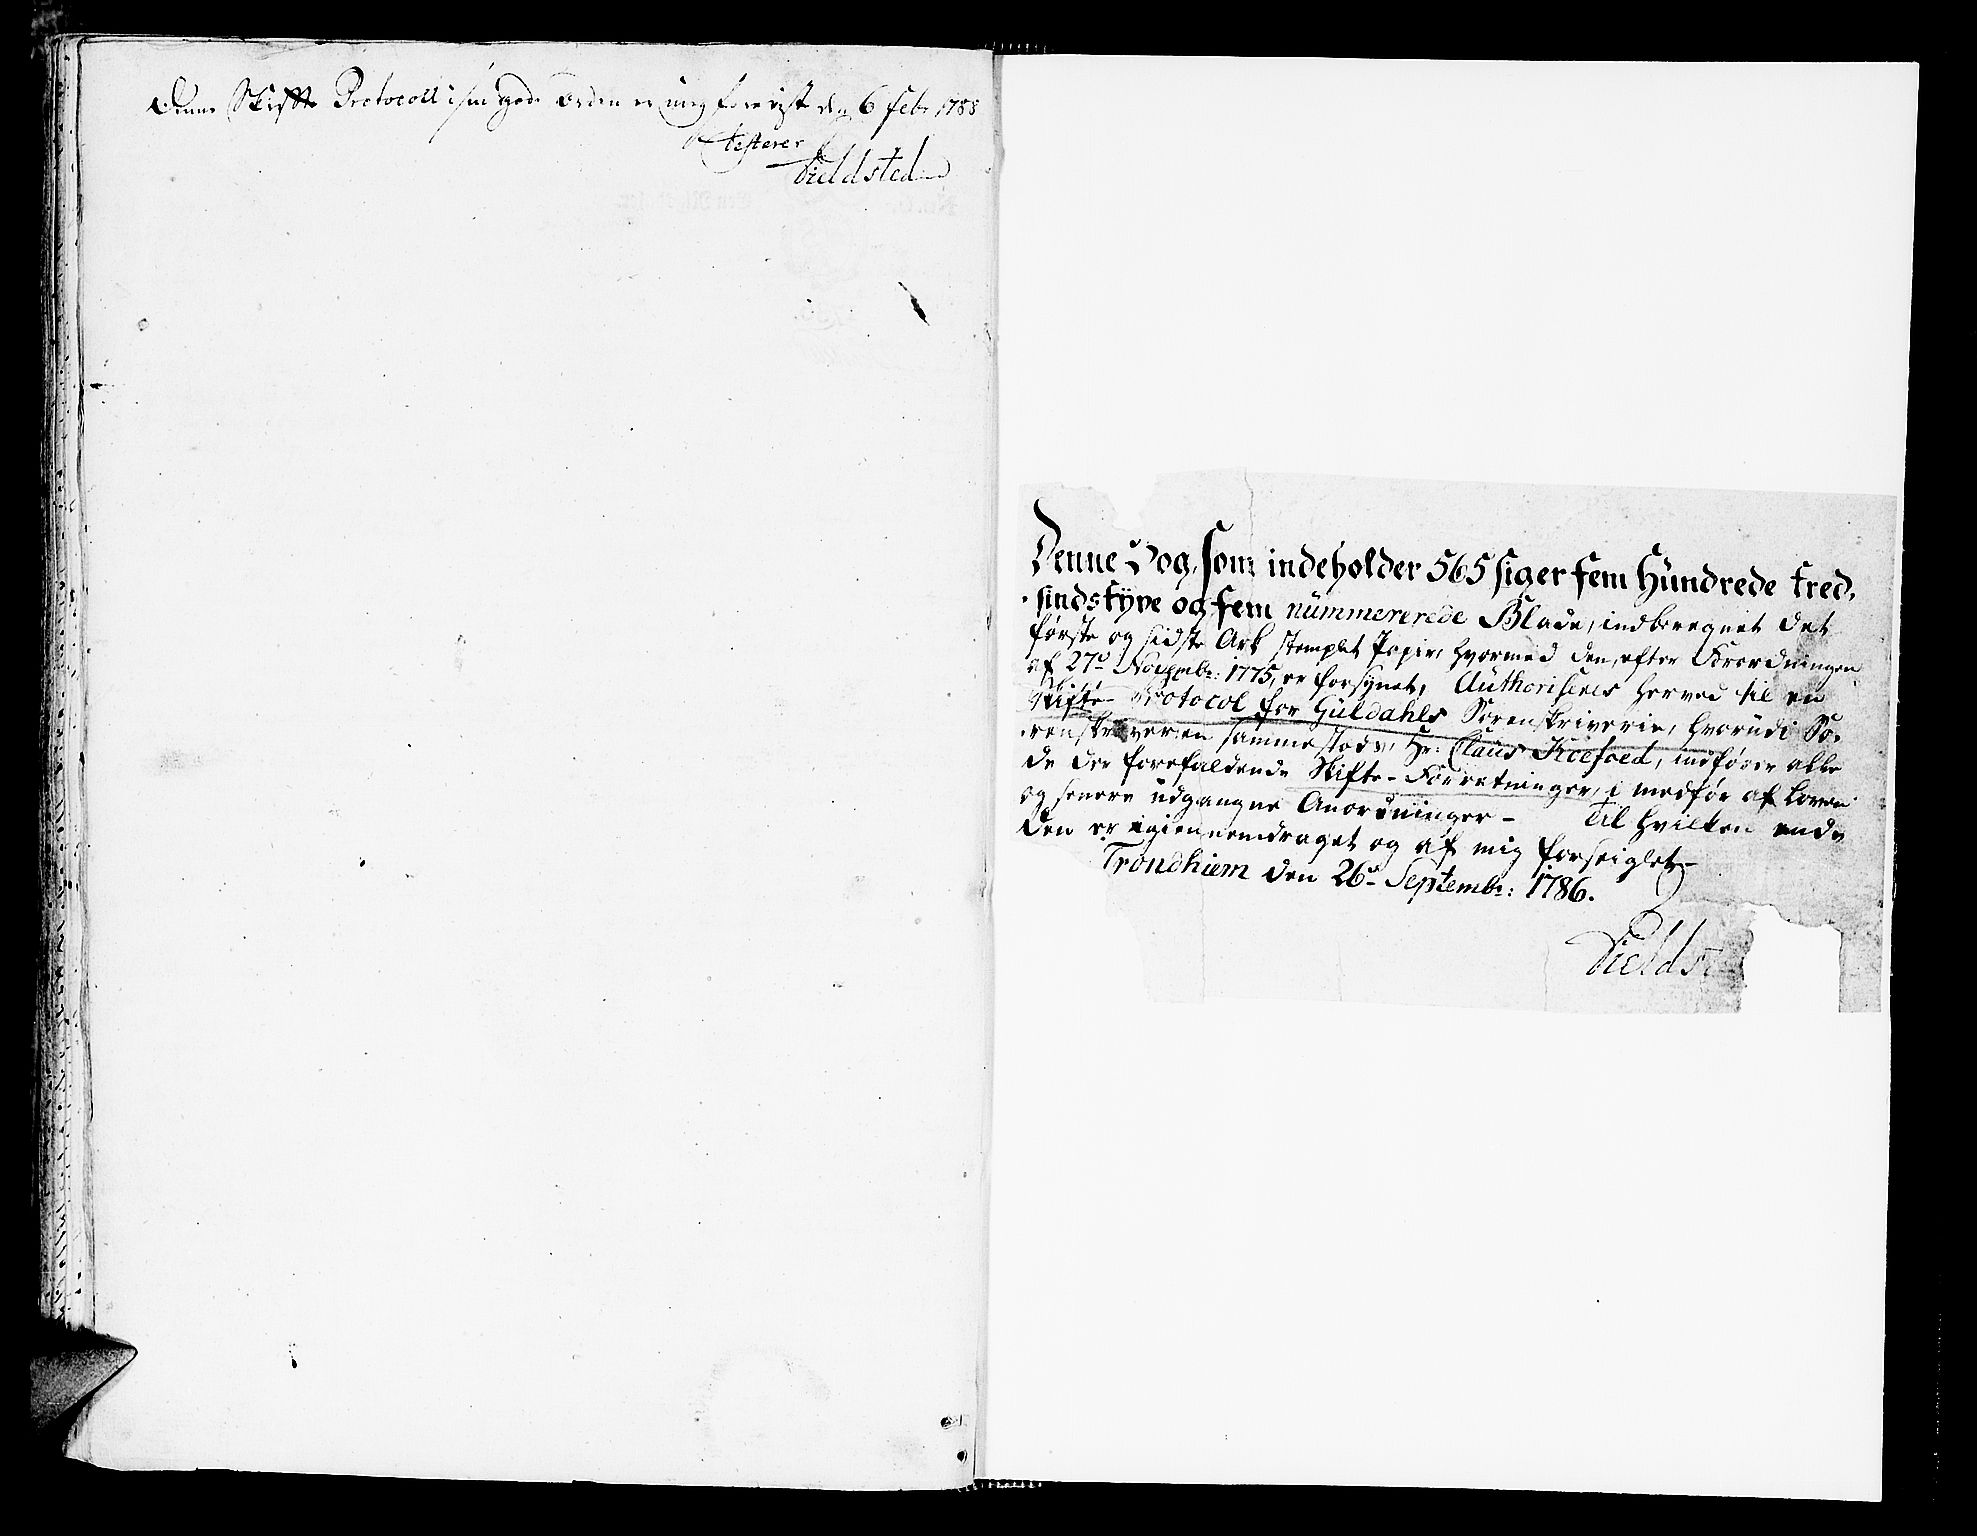 Denne Skifte Protocoll i sin gode orden er mig foreviist den 6 febr 1788
Attesterer
Fieldsted
Denne Bog, som indeholder 565 siger fem Hundrede tred,
sindstyve og fem nummererede Blade, indberegnet det
første og sidste Ark stemplet Papir, hvormed den, efter Forordningen
af 27de Novembr: 1775, er forsynet, Authoriseres herved til en
Skifte Protocol for Guldahls Sorenskriverie, hvorudi So,
renskriveren sammesteds, Hr: Claus Koefoed, indfører alle
de der forefaldende Skifte-Forretninger, i medfør af Loven
og senere udgangne Anordninger - Til hvilken ende
den er igiennemdraget og af mig forseiglet -
Trondhiem den 26de Septembr: 1786.
Fieldst